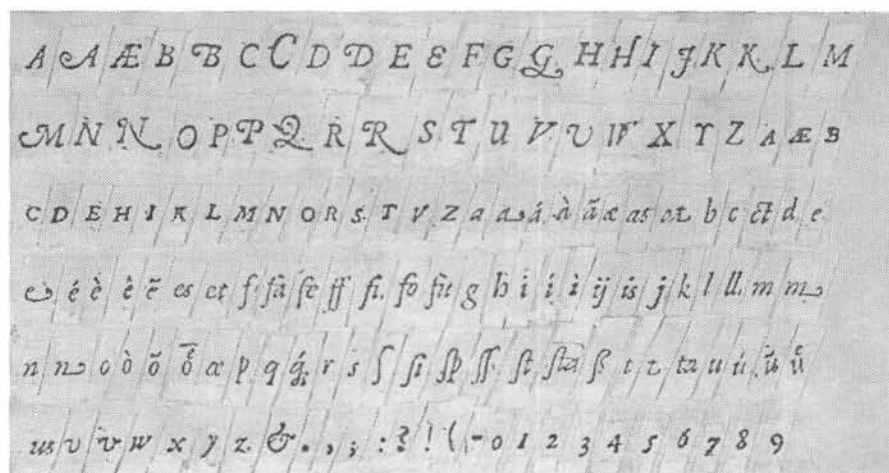 A A Æ B B C C D D E E F G G H H I J K K L M
M N N O P P Q R R S T U V U W X Y Z A Æ B
C D E H I K L M N O R S T V Z a a á à ã æ as b c ct d e
e é è ẽ es ct f fa fe ff fi fo fu g h i í ì ij is j k l ll m m
n n o ò õ œ p q r s ſ ſi ſp ſſ ſt ß t ta u ú
us v v w x y z & . , ; : ? ! ( - 0 1 2 3 4 5 6 7 8 9